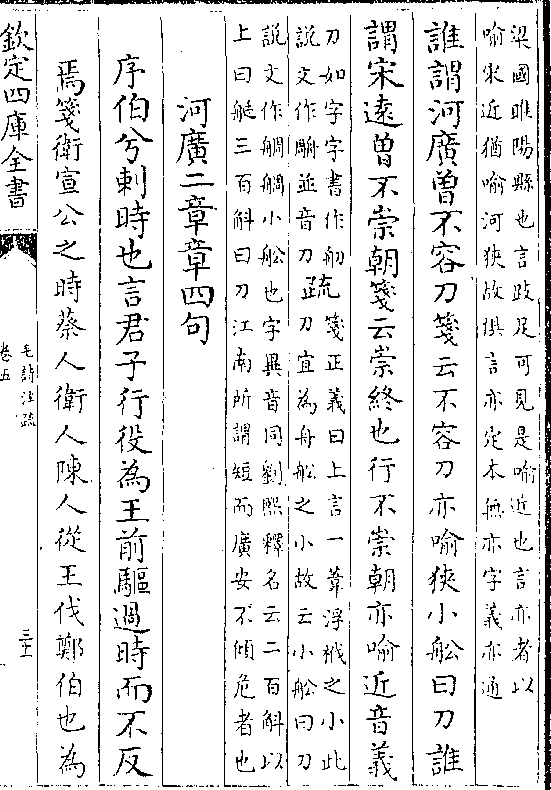 梁國睢陽縣也言跂足可見是喻近也言亦者以
喻宋近猶喻河狹故俱言亦定本無亦字義亦通
誰謂河廣曾不容刀箋云不容刀亦喻狹小船曰刀誰
謂宋遠曾不崇朝箋云崇終也行不崇朝亦喻近音義
刀如字字書作舠
説文作𦨣並音刀疏箋正義曰上言一葦浮栰之小此
刀宜為舟船之小故云小船曰刀
説文作䑠䑠小船也字異音同劉熙釋名云二百斛以
上曰艇三百斛曰刀江南所謂短而廣安不傾危者也
河廣二章章四句
序伯兮刺時也言君子行役為王前驅過時而不反
焉箋衛宣公之時蔡人衛人陳人從王伐鄭伯也為
欽定四庫全書
毛詩注疏
卷五
三十二